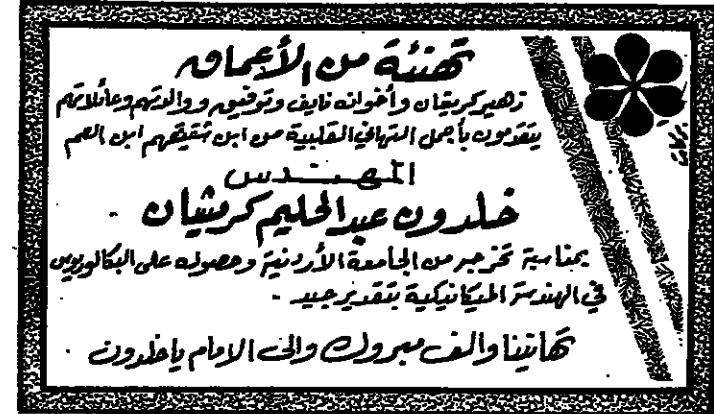 تهنئة من الأعماق
زهير كريشان وأخوانه نايف وتوفيق ووالدتهم وعائلاتهم
يتقدمون بأجمل التهاني القلبية من ابن شقيقهم ابن العم
المهندس
خلدون عبدالحليم كريشان -
بمناسبة تخرجه من الجامعة الأردنية وحصوله على البكالوريوس
في الهندسة الميكانيكية بتقدير جيد -
تهانينا والف مبروك والى الامام ياخلدون -
بركات